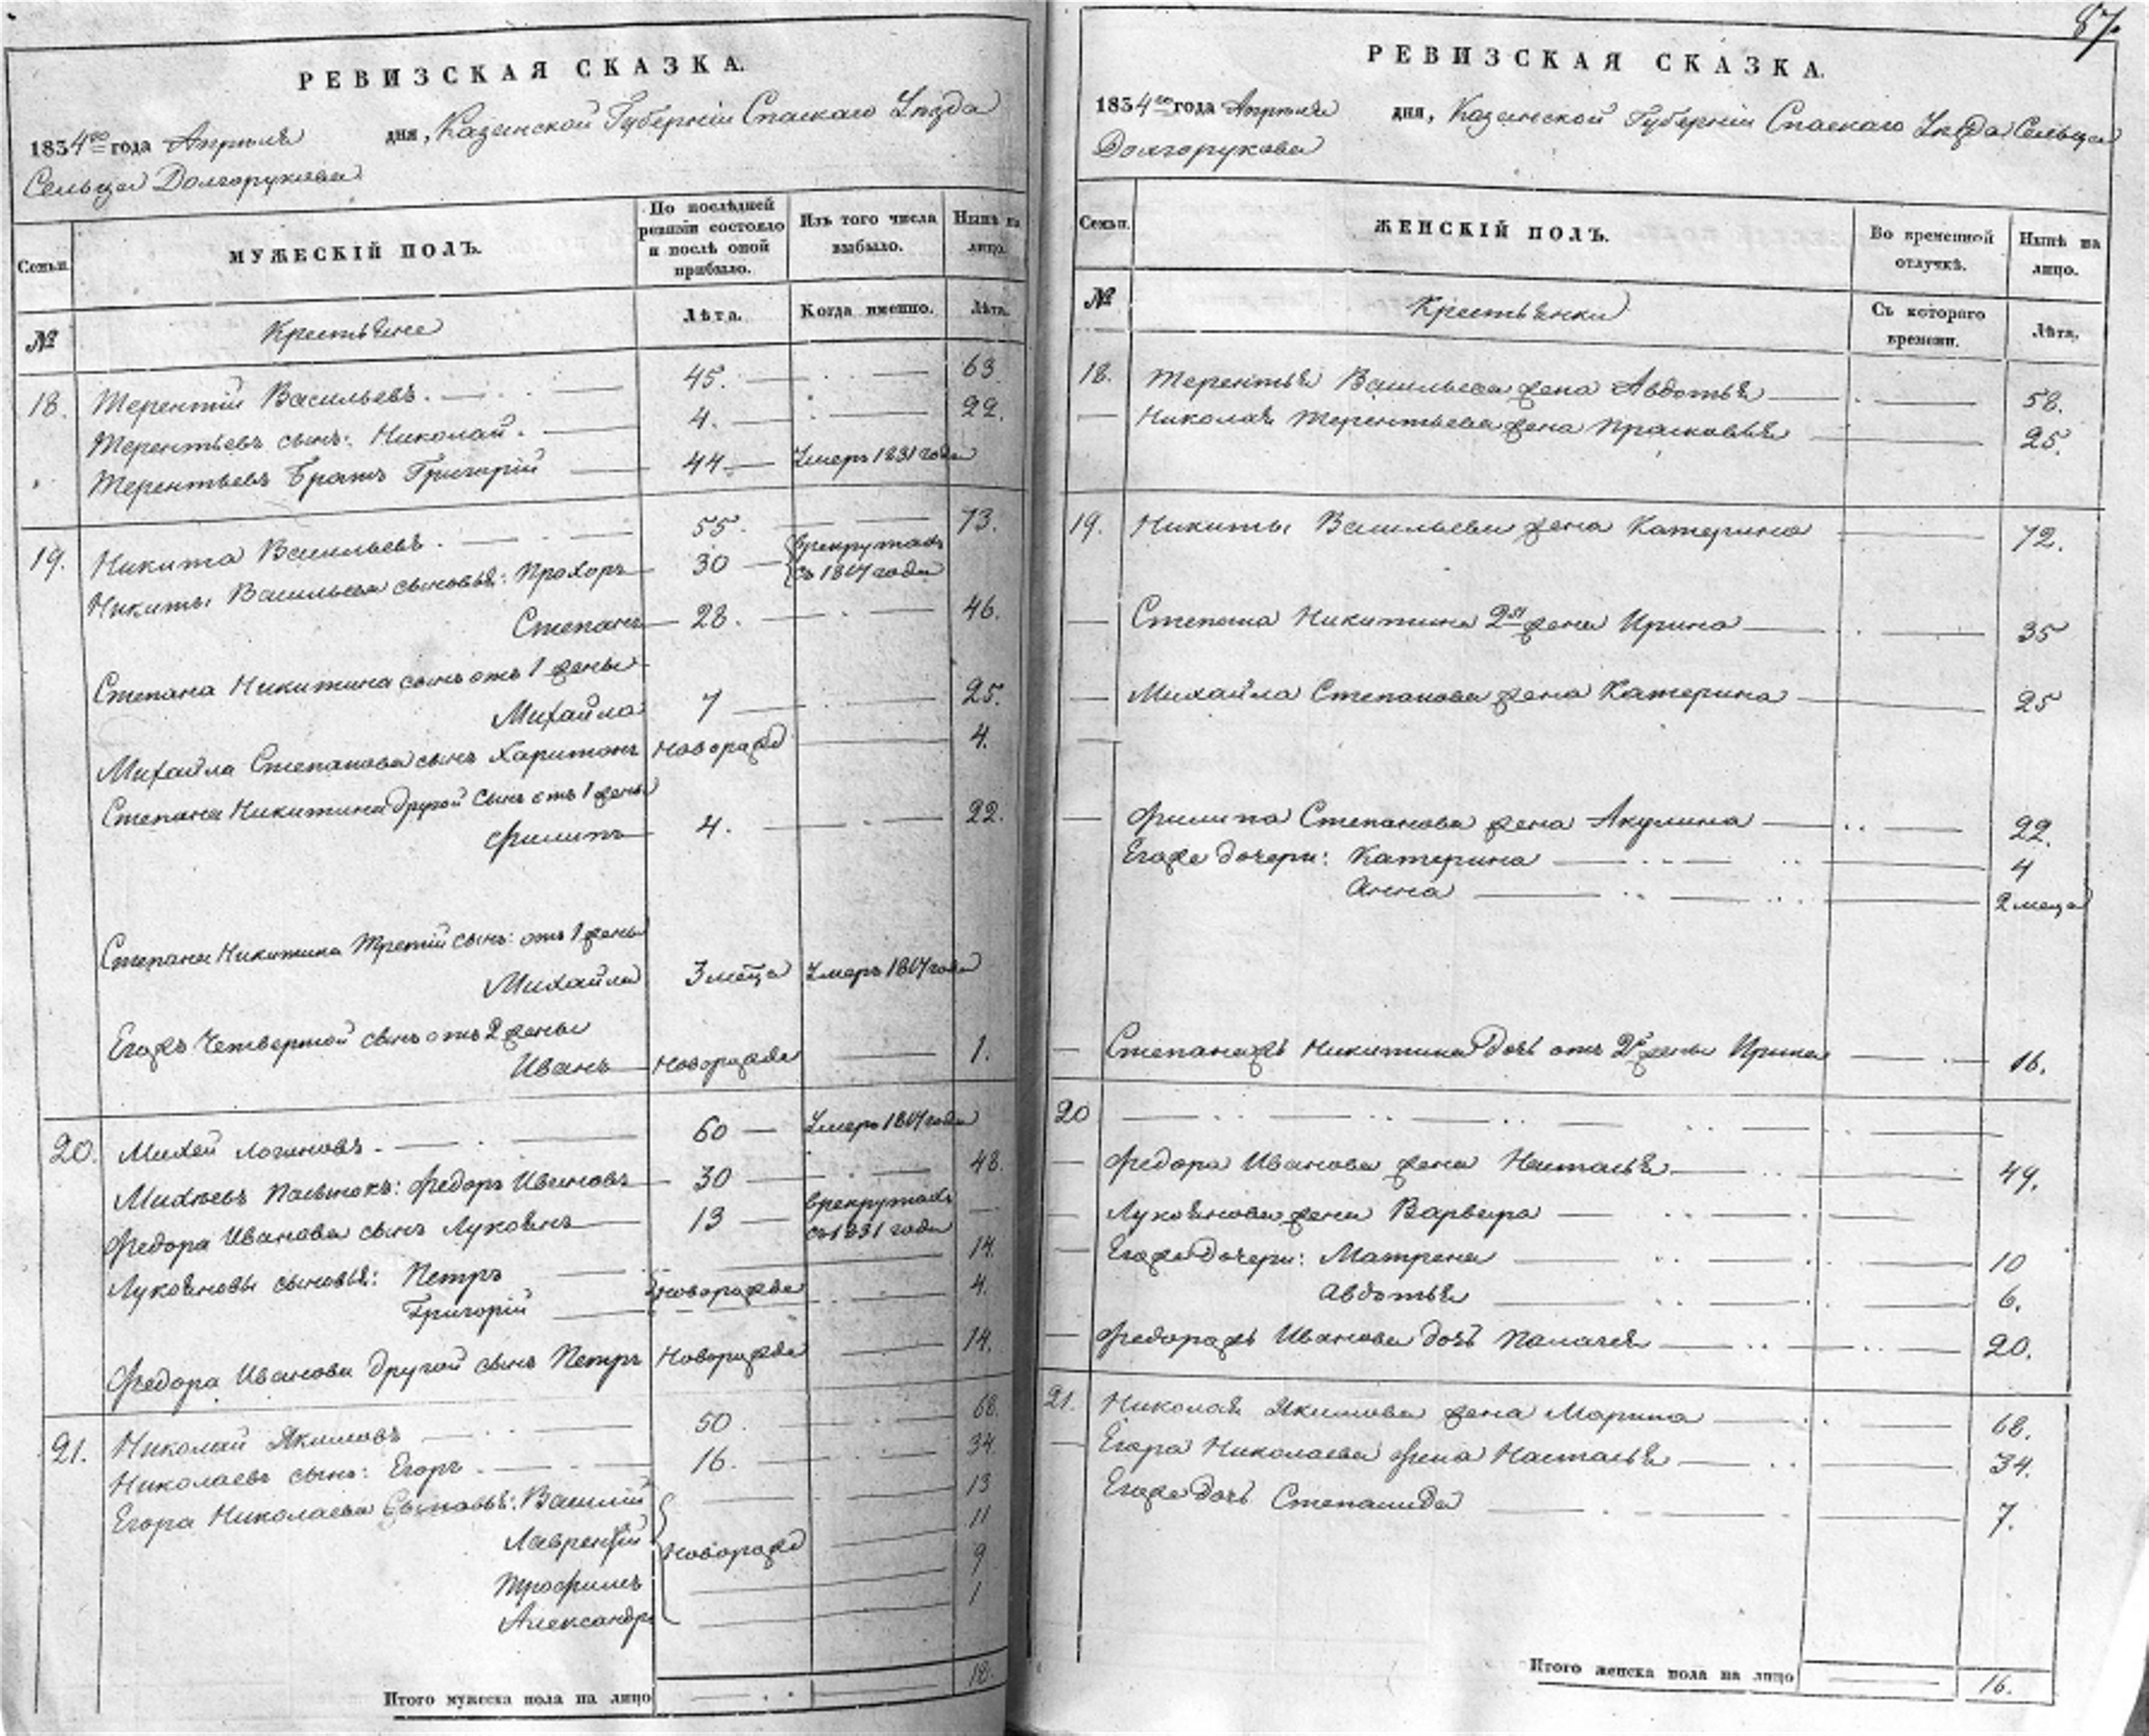 РЕВИЗСКАЯ СКАЗКА.
1834го года Апреля дня, Казанской Губернiи Спаскаго Уезда
Сельца Долгорукова
Семьи.
МУЖЕСКIЙ ПОЛЪ.
По послѣдней ревизiи состояло и послѣ оной прибыло.
Изъ того числа выбыло.
Нынѣ на лицо.
№
Крестьяне
Лѣта.
Когда именно.
Лѣта.
18. Терентiй Васильевъ. 45. 63
Терентьевъ сынъ: Николай. 4. 22.
Терентьевъ братъ Григорiй 44 Умеръ 1831 года
19. Никита Васильевъ. 55. 73.
Никиты Васильева сыновья: Прохоръ 30 врекрутахъ съ 1817 года
Степанъ 28. 46.
Степана Никитина сынъ отъ 1 жены
Михайла 7 25.
Михайла Степанова сынъ Харитонъ Новорожд 4.
Степана Никитина другой сынъ отъ 1 жены
Филипъ 4. 22.
Степана Никитина Третiй сынъ: отъ 1 жены
Михайла 3 меца Умеръ 1817 года
Егожъ Четвертой сынъ отъ 2 жены
Иванъ Новорожде 1.
20. Михей Логиновъ. 60 Умеръ 1817 года
Михѣевъ Пасынокъ: Федоръ Ивановъ 30 48.
Федора Иванова сынъ Лукоянъ 13 врекрутахъ съ 1831 года
Лукояновы сыновья: Петръ 14.
Григорiй Новорожде 4.
Федора Иванова другой сынъ Петръ Новорожде 14.
21. Николай Якимовъ 50. 68.
Николаевъ сынъ: Егоръ 16. 34.
Егора Николаева Сыновья: Василiй 13
Лаврентiй Новорожд 11
Трофимъ 9
Александръ 1
Итого мужеска пола на лицо 18.
87.
РЕВИЗСКАЯ СКАЗКА.
1834го года Апреля дня, Казанской Губернiи Спаскаго Уезда Сельца
Долгорукова
Семьи.
ЖЕНСКIЙ ПОЛЪ.
Во временной отлучкѣ.
Нынѣ на лицо.
№
Крестьянки
Съ котораго времени.
Лѣта.
18. Терентья Васильева жена Авдотья 58.
Николая Терентьева жена Прасковья 25.
19. Никиты Васильева жена Катерина 72.
Степана Никитина 2я жена Ирина 35
Михайла Степанова жена Катерина 25
Филипа Степанова жена Акулина 22.
Егоже дочери: Катерина 4
Анна 2 меца
Степанажъ Никитина дочь отъ 2й жены Ирина 16.
20
Федора Иванова жена Настасья 49.
Лукоянова жена Варвара
Егоже дочери: Матрена 10
Авдотья 6.
Федоражъ Иванова дочь Палагея 20.
21. Николая Якимова жена Марина 68.
Егора Николаева жена Настасья 34.
Егоже дочь Степанида 7.
Итого женска пола на лицо 16.